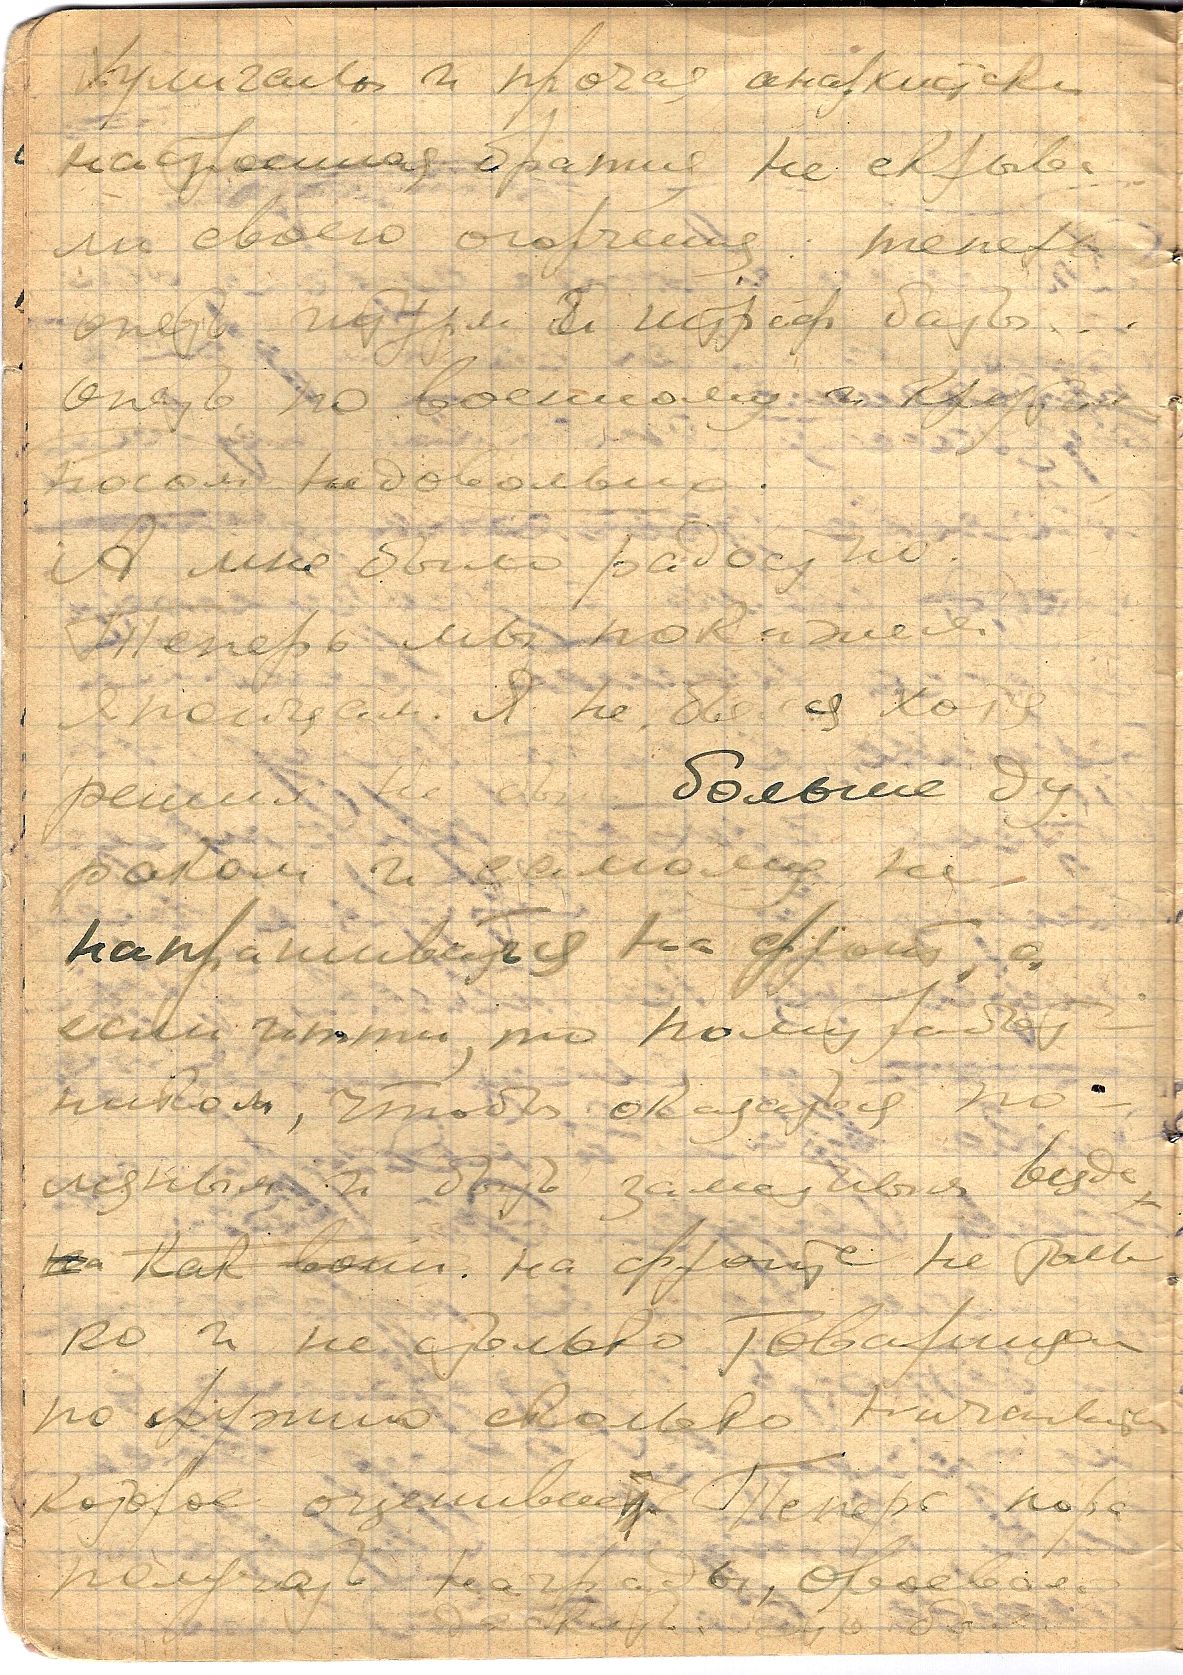 Хулиганы и прочая анархистски
настроенная братия не скрыва
ли своего огорчения. теперь
опять штурм и штраф баты...
опять по военному а крутят
носом недовольно.
А мне было радостно.
Теперь мы покажем
японцам. Я не боялся хотя
решил не быть больше ду
раком и самому не
напрашиваться на фронт, а
если итти, то политработ
ником, чтобы оказаться по-
лезным и быть замеченным везде
на как воин. на фронте не толь
ко и не столько товарищам
по оружию сколько начальством
которое оценивает Теперь пора
получать награды, отвоевали